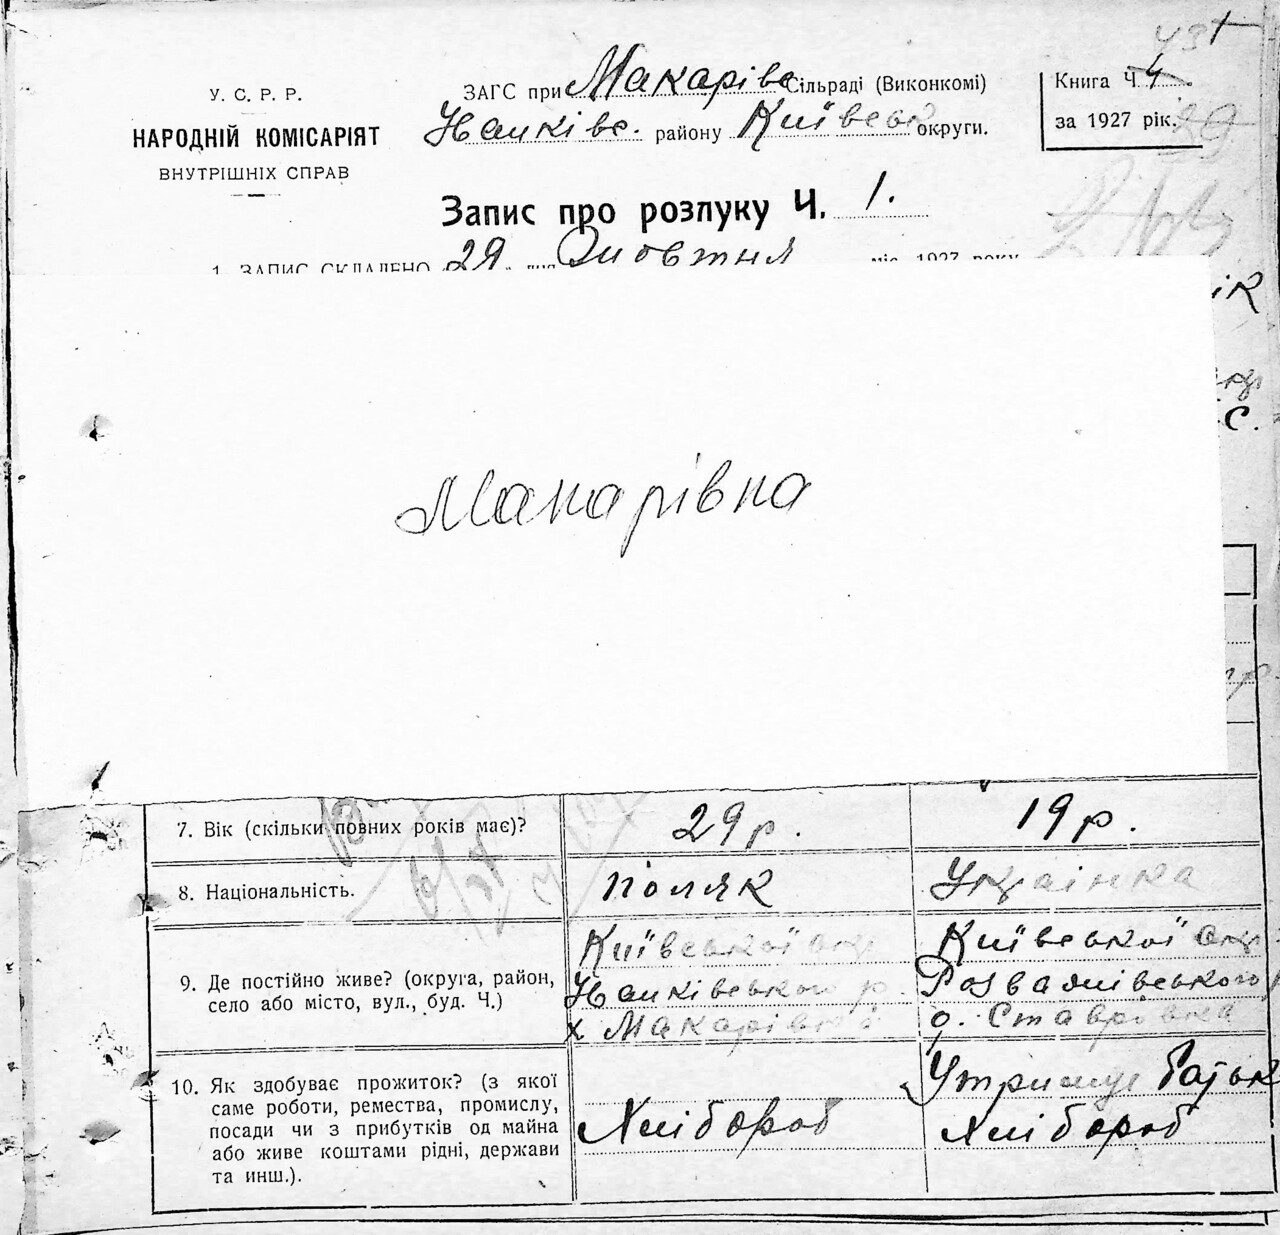 431
У. С. Р. Р.
НАРОДНІЙ КОМІСАРІЯТ
ВНУТРІШНІХ СПРАВ
ЗАГС при Макарівс Сільраді (Виконкомі)
Ханківс. району Київськ округи.
Книга Ч. 4
за 1927 рік.
29
Запис про розлуку Ч. 1.
1. ЗАПИС СКЛАДЕНО 29 дня Жовтня міс. 1927 року
ік
с.
Макарівка
7. Вік (скільки повних років має)? 29 р. 19 р.
8. Національність. поляк Українка
9. Де постійно живе? (округа, район, село або місто, вул., буд. Ч.)
Київської окр Київської окр
Ханківського р. Розважівського
х Макарівка с. Ставрівка
10. Як здобуває прожиток? (з якої
саме роботи, ремества, промислу,
посади чи з прибутків од майна
або живе коштами рідні, держави
та инш.).
Утримує батьк
Хлібороб Хлібороб